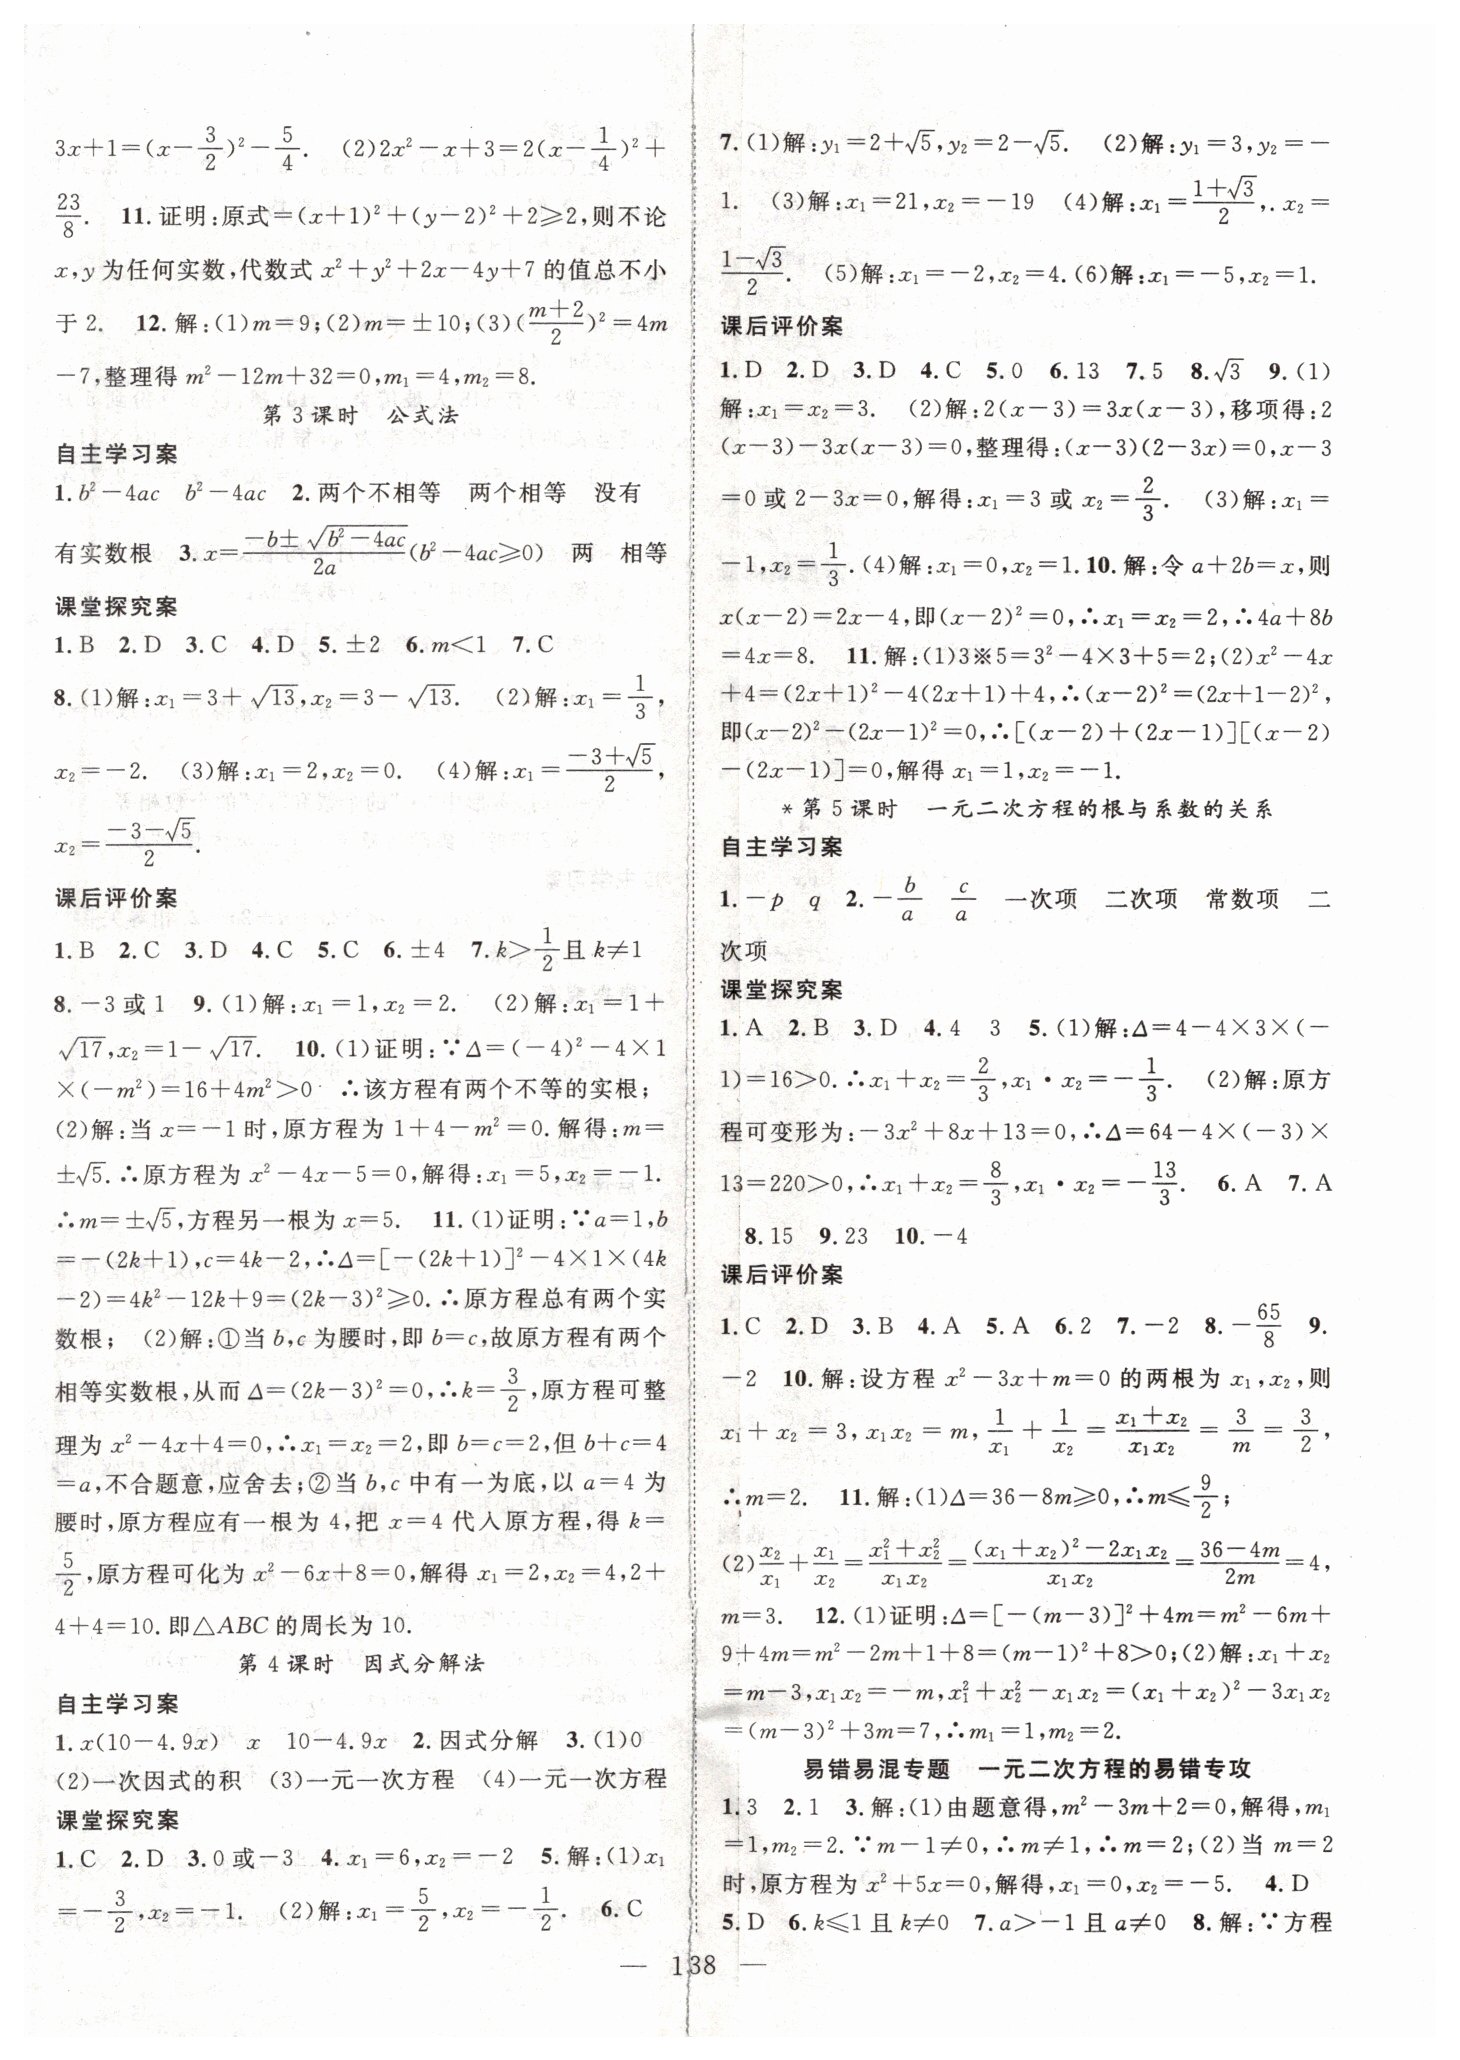 3x+1=(x-3/2)²-5/4.  (2)2x²-x+3=2(x-1/4)²+
23/8.  11.证明:原式=(x+1)²+(y-2)²+2≥2,则不论
x,y为任何实数,代数式x²+y²+2x-4y+7的值总不小
于2.  12.解:(1)m=9;(2)m=±10;(3)((m+2)/2)²=4m
-7,整理得m²-12m+32=0,m₁=4,m₂=8.
第3课时  公式法
自主学习案
1.b²-4ac  b²-4ac  2.两个不相等  两个相等  没有
有实数根  3.x=(-b±√(b²-4ac))/2a(b²-4ac≥0)  两  相等
课堂探究案
1.B  2.D  3.C  4.D  5.±2  6.m<1  7.C
8.(1)解:x₁=3+√13,x₂=3-√13.  (2)解:x₁=1/3,
x₂=-2.  (3)解:x₁=2,x₂=0.  (4)解:x₁=(-3+√5)/2,
x₂=(-3-√5)/2.
课后评价案
1.B  2.C  3.D  4.C  5.C  6.±4  7.k>1/2且k≠1
8.-3或1  9.(1)解:x₁=1,x₂=2.  (2)解:x₁=1+
√17,x₂=1-√17.  10.(1)证明:∵Δ=(-4)²-4×1
×(-m²)=16+4m²>0  ∴该方程有两个不等的实根;
(2)解:当x=-1时,原方程为1+4-m²=0.解得:m=
±√5.∴原方程为x²-4x-5=0,解得:x₁=5,x₂=-1.
∴m=±√5,方程另一根为x=5.  11.(1)证明:∵a=1,b
=-(2k+1),c=4k-2,∴Δ=[-(2k+1)]²-4×1×(4k
-2)=4k²-12k+9=(2k-3)²≥0.∴原方程总有两个实
数根;  (2)解:①当b,c为腰时,即b=c,故原方程有两个
相等实数根,从而Δ=(2k-3)²=0,∴k=3/2,原方程可整
理为x²-4x+4=0,∴x₁=x₂=2,即b=c=2,但b+c=4
=a,不合题意,应舍去;②当b,c中有一为底,以a=4为
腰时,原方程应有一根为4,把x=4代入原方程,得k=
5/2,原方程可化为x²-6x+8=0,解得x₁=2,x₂=4,2+
4+4=10.即△ABC的周长为10.
第4课时  因式分解法
自主学习案
1.x(10-4.9x)  x  10-4.9x  2.因式分解  3.(1)0
(2)一次因式的积  (3)一元一次方程  (4)一元一次方程
课堂探究案
1.C  2.D  3.0或-3  4.x₁=6,x₂=-2  5.解:(1)x₁
=-3/2,x₂=-1.  (2)解:x₁=5/2,x₂=-1/2.  6.C
7.(1)解:y₁=2+√5,y₂=2-√5.  (2)解:y₁=3,y₂=-
1.  (3)解:x₁=21,x₂=-19  (4)解:x₁=(1+√3)/2,.x₂=
(1-√3)/2.  (5)解:x₁=-2,x₂=4.(6)解:x₁=-5,x₂=1.
课后评价案
1.D  2.D  3.D  4.C  5.0  6.13  7.5  8.√3  9.(1)
解:x₁=x₂=3.  (2)解:2(x-3)=3x(x-3),移项得:2
(x-3)-3x(x-3)=0,整理得:(x-3)(2-3x)=0,x-3
=0或2-3x=0,解得:x₁=3或x₂=2/3.  (3)解:x₁=
-1,x₂=1/3.(4)解:x₁=0,x₂=1.10.解:令a+2b=x,则
x(x-2)=2x-4,即(x-2)²=0,∴x₁=x₂=2,∴4a+8b
=4x=8.  11.解:(1)3※5=3²-4×3+5=2;(2)x²-4x
+4=(2x+1)²-4(2x+1)+4,∴(x-2)²=(2x+1-2)²,
即(x-2)²-(2x-1)²=0,∴[(x-2)+(2x-1)][(x-2)
-(2x-1)]=0,解得x₁=1,x₂=-1.
*第5课时  一元二次方程的根与系数的关系
自主学习案
1.-p  q  2.-b/a  c/a  一次项  二次项  常数项  二
次项
课堂探究案
1.A  2.B  3.D  4.4  3  5.(1)解:Δ=4-4×3×(-
1)=16>0.∴x₁+x₂=2/3,x₁·x₂=-1/3.  (2)解:原方
程可变形为:-3x²+8x+13=0,∴Δ=64-4×(-3)×
13=220>0,∴x₁+x₂=8/3,x₁·x₂=-13/3.  6.A  7.A
8.15  9.23  10.-4
课后评价案
1.C  2.D  3.B  4.A  5.A  6.2  7.-2  8.-65/8  9.
-2  10.解:设方程x²-3x+m=0的两根为x₁,x₂,则
x₁+x₂=3,x₁x₂=m,1/x₁+1/x₂=(x₁+x₂)/x₁x₂=3/m=3/2,
∴m=2.  11.解:(1)Δ=36-8m≥0,∴m≤9/2;
(2)x₂/x₁+x₁/x₂=(x₁²+x₂²)/x₁x₂=((x₁+x₂)²-2x₁x₂)/x₁x₂=(36-4m)/2m=4,
m=3.  12.(1)证明:Δ=[-(m-3)]²+4m=m²-6m+
9+4m=m²-2m+1+8=(m-1)²+8>0;(2)解:x₁+x₂
=m-3,x₁x₂=-m,x₁²+x₂²-x₁x₂=(x₁+x₂)²-3x₁x₂
=(m-3)²+3m=7,∴m₁=1,m₂=2.
易错易混专题  一元二次方程的易错专攻
1.3  2.1  3.解:(1)由题意得,m²-3m+2=0,解得,m₁
=1,m₂=2.∵m-1≠0,∴m≠1,∴m=2;(2)当m=2
时,原方程为x²+5x=0,解得,x₁=0,x₂=-5.  4.D
5.D  6.k≤1且k≠0  7.a>-1且a≠0  8.解:∵方程
— 138 —